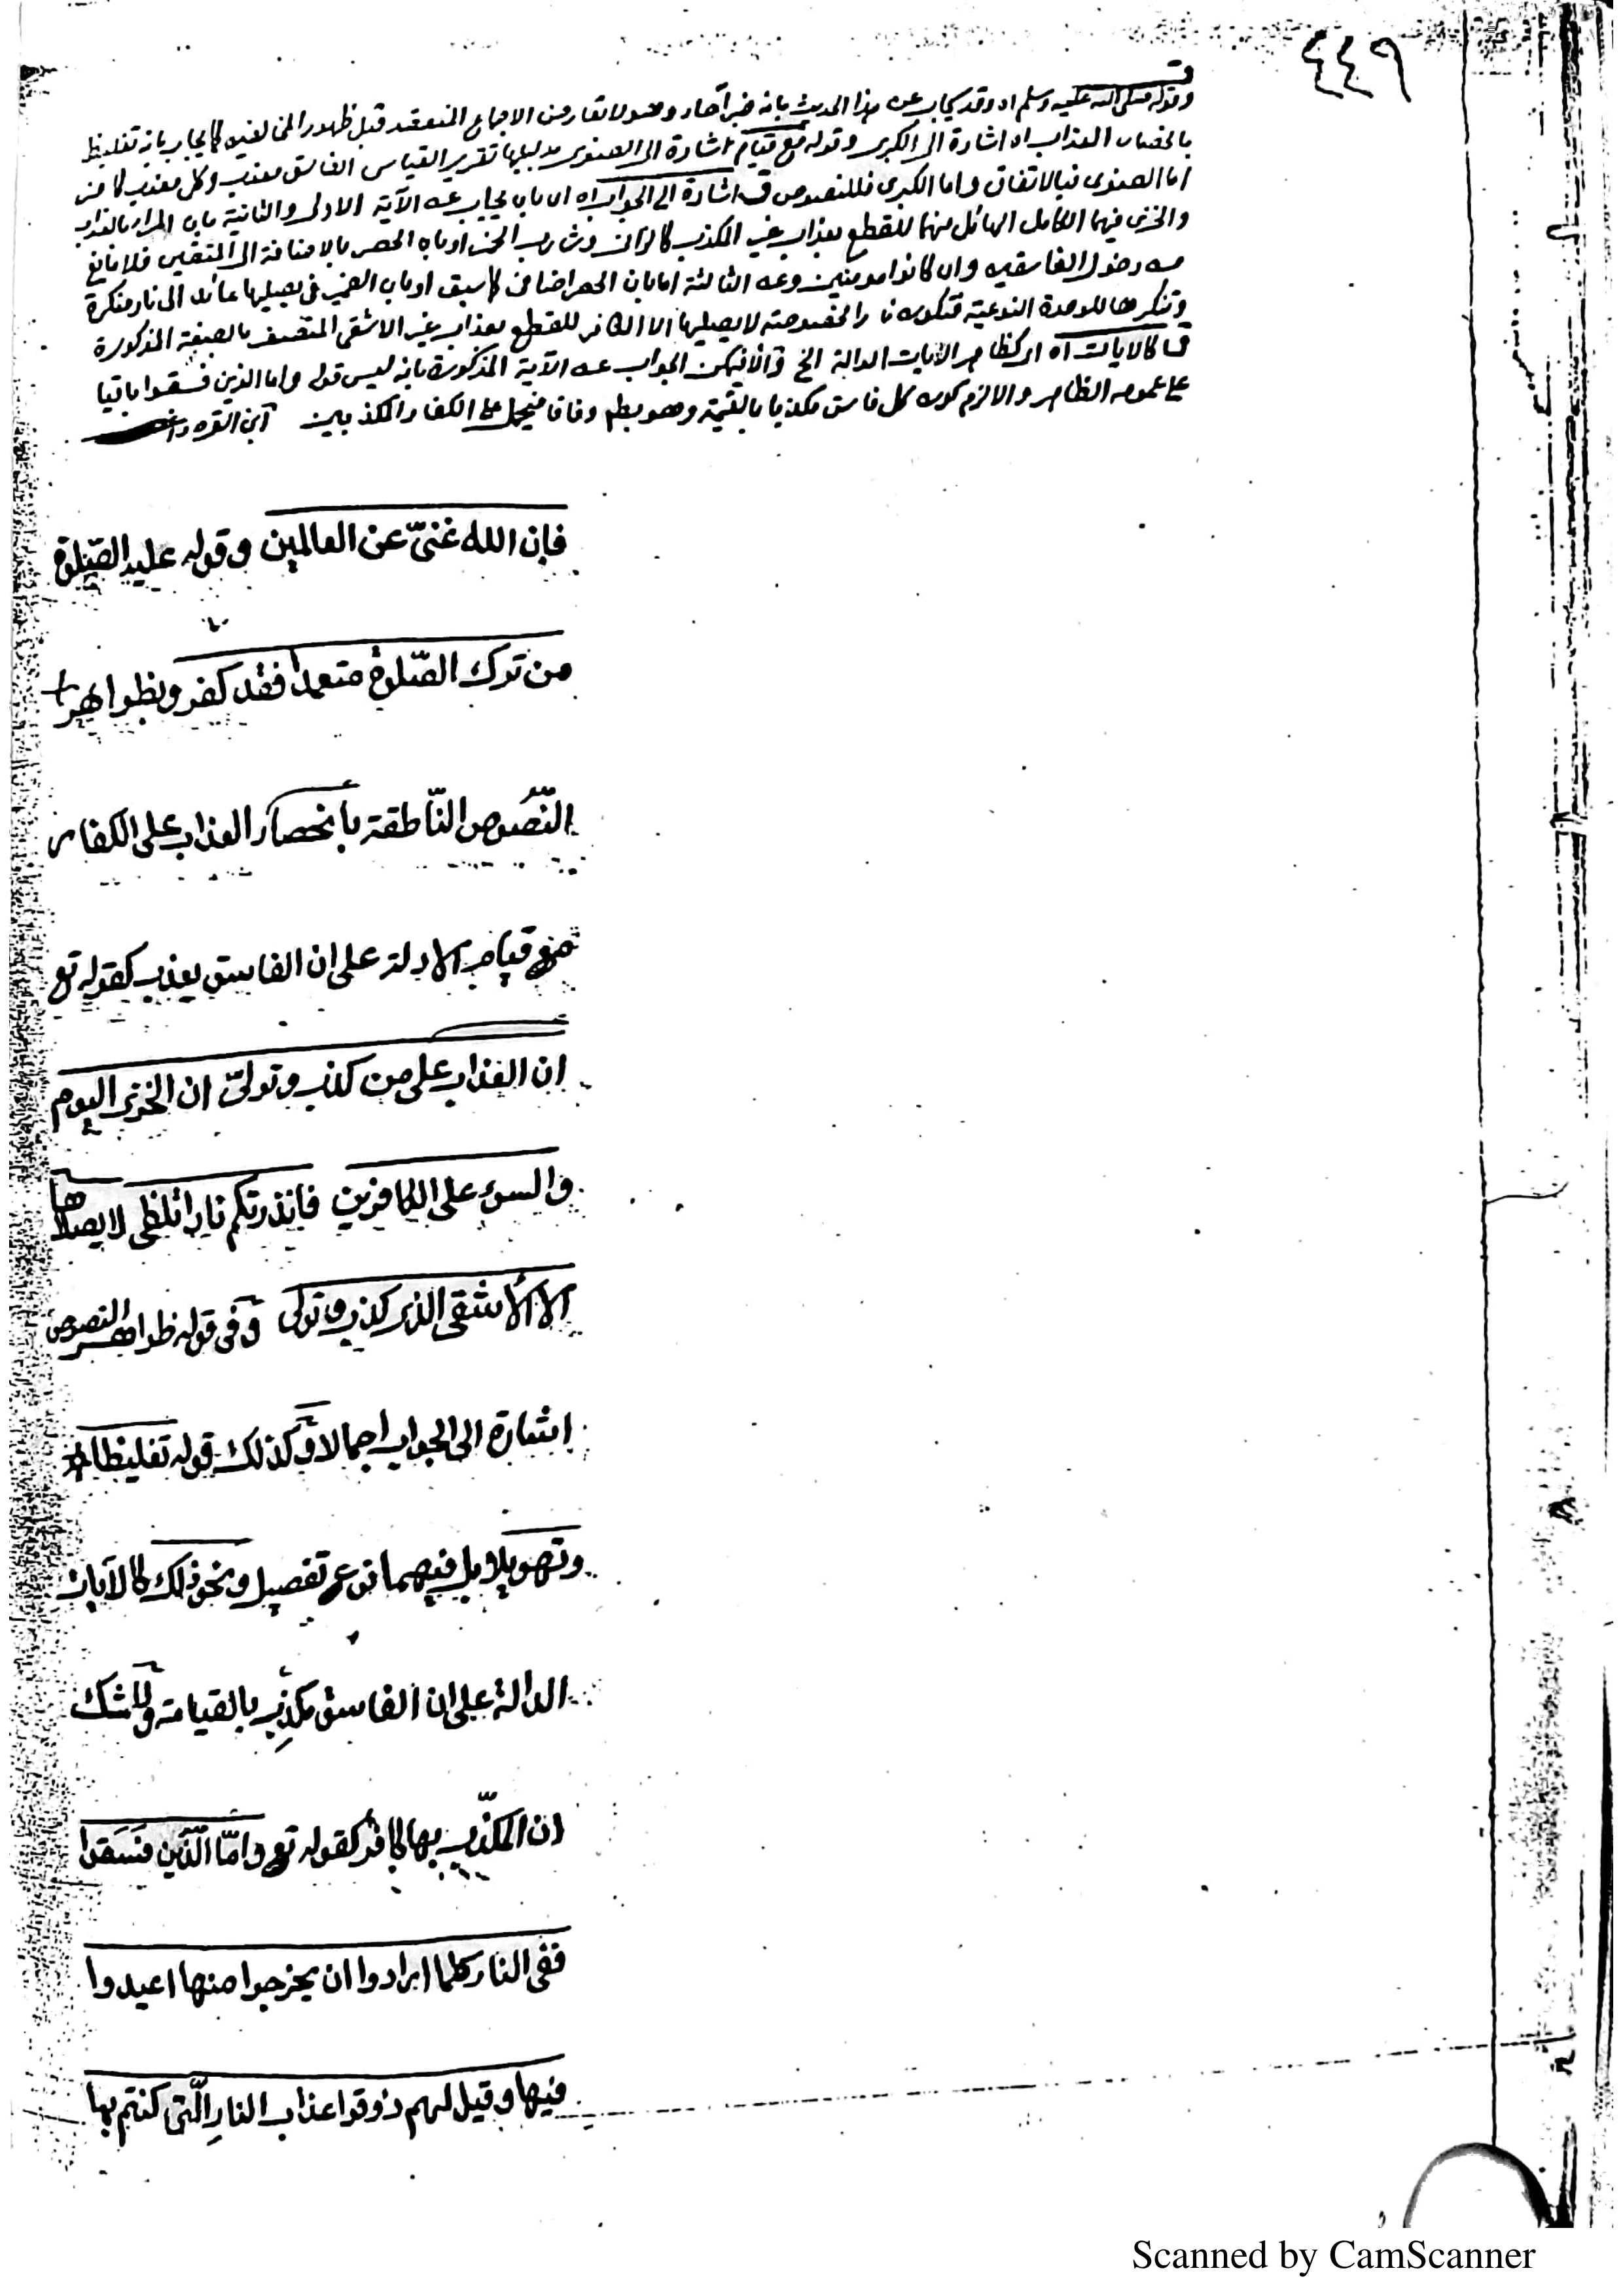 ٤٤٩
وقوله صلى الله عليه وسلم اه وقد يجاب عن هذا الحديث بانه خبر آحاد وهو لا تعارض الاجماع المنعقد قبل ظهور المخالفين كما يجاب بانه تغليظ
بانحصار العذاب اه اشارة الى الكبرى وقوله مع قيام اشارة الى الصغرى بدليلها تقرير القياس الفاسق معذب وكل معذب كافر
اما الصغرى فبالاتفاق واما الكبرى فللنصوص اشارة الى الجواب اه اى بان يجاب عن الآية الاولى والثانية بان المراد بالعذاب
والخزى فيهما الكامل الهائل منهما للقطع بعذاب غير المكذب كالزانى وشارب الخمر او بان الحصر بالاضافة الى المتقين فلا مانع
من دخول الفاسقين وان كانوا مؤمنين وعن الثالثة اما بان الحصر اضافى كما سبق او بان الضمير فى يصليها عائد الى نار منكرة
وتنكيرها للوحدة النوعية فتكون نارا مخصوصة لا يصليها الا الكافر للقطع بعذاب غير الاشقى المتصف بالصفة المذكورة
كالايات اه اى كظاهر الايات الدالة الخ والا فيمكن الجواب عن الآية المذكورة بانه ليس قوله واما الذين فسقوا باقيا
على عمومه الظاهر والا لزم كون كل فاسق مكذبا بالقيمة وهو بط وفاقا فيحمل على الكفار المكذبين ابن القره داغى
فإن الله غنىّ عن العالمين وقوله عليه الصّلوة
من ترك الصّلوة متعمدا فقد كفر وبظواهر
النّصوص النّاطقة بأنحصار العذاب على الكفار
مع قيام الادلة على ان الفاسق يعذب كقوله تع
ان العذاب على من كذب وتولىّ ان الخزى اليوم
والسوء على الكافرين فانذرتكم نارا تلظى لا يصلاها
الا الأشقى الذى كذب وتولى وفى قوله ظواهر النصوص
اشارة الى الجواب اجمالا وكذلك قوله تغليظا
وتهويلا بل فيهما نوع تفصيل ونحو ذلك كالآيات
الدالة على ان الفاسق مكذِّب بالقيامة ولا شك
ان المكذّب بها كافر كقوله تع وامّا الّذين فَسَقوا
ففى النار كلما ارادوا ان يخرجوا منها اعيدوا
فيها وقيل لهم ذوقوا عذاب النارِ الّتى كنتم بها
Scanned by CamScanner